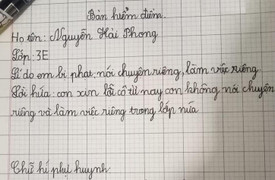 Bản kiểm điểm
Họ tên: Nguyễn Hải Phong
Lớp: 3E
Lí do em bị phạt: nói chuyện riêng, làm việc riêng
Lời hứa: con xin lỗi cô từ nay con không nói chuyện
riêng và làm việc riêng trong lớp nữa
Chữ kí phụ huynh